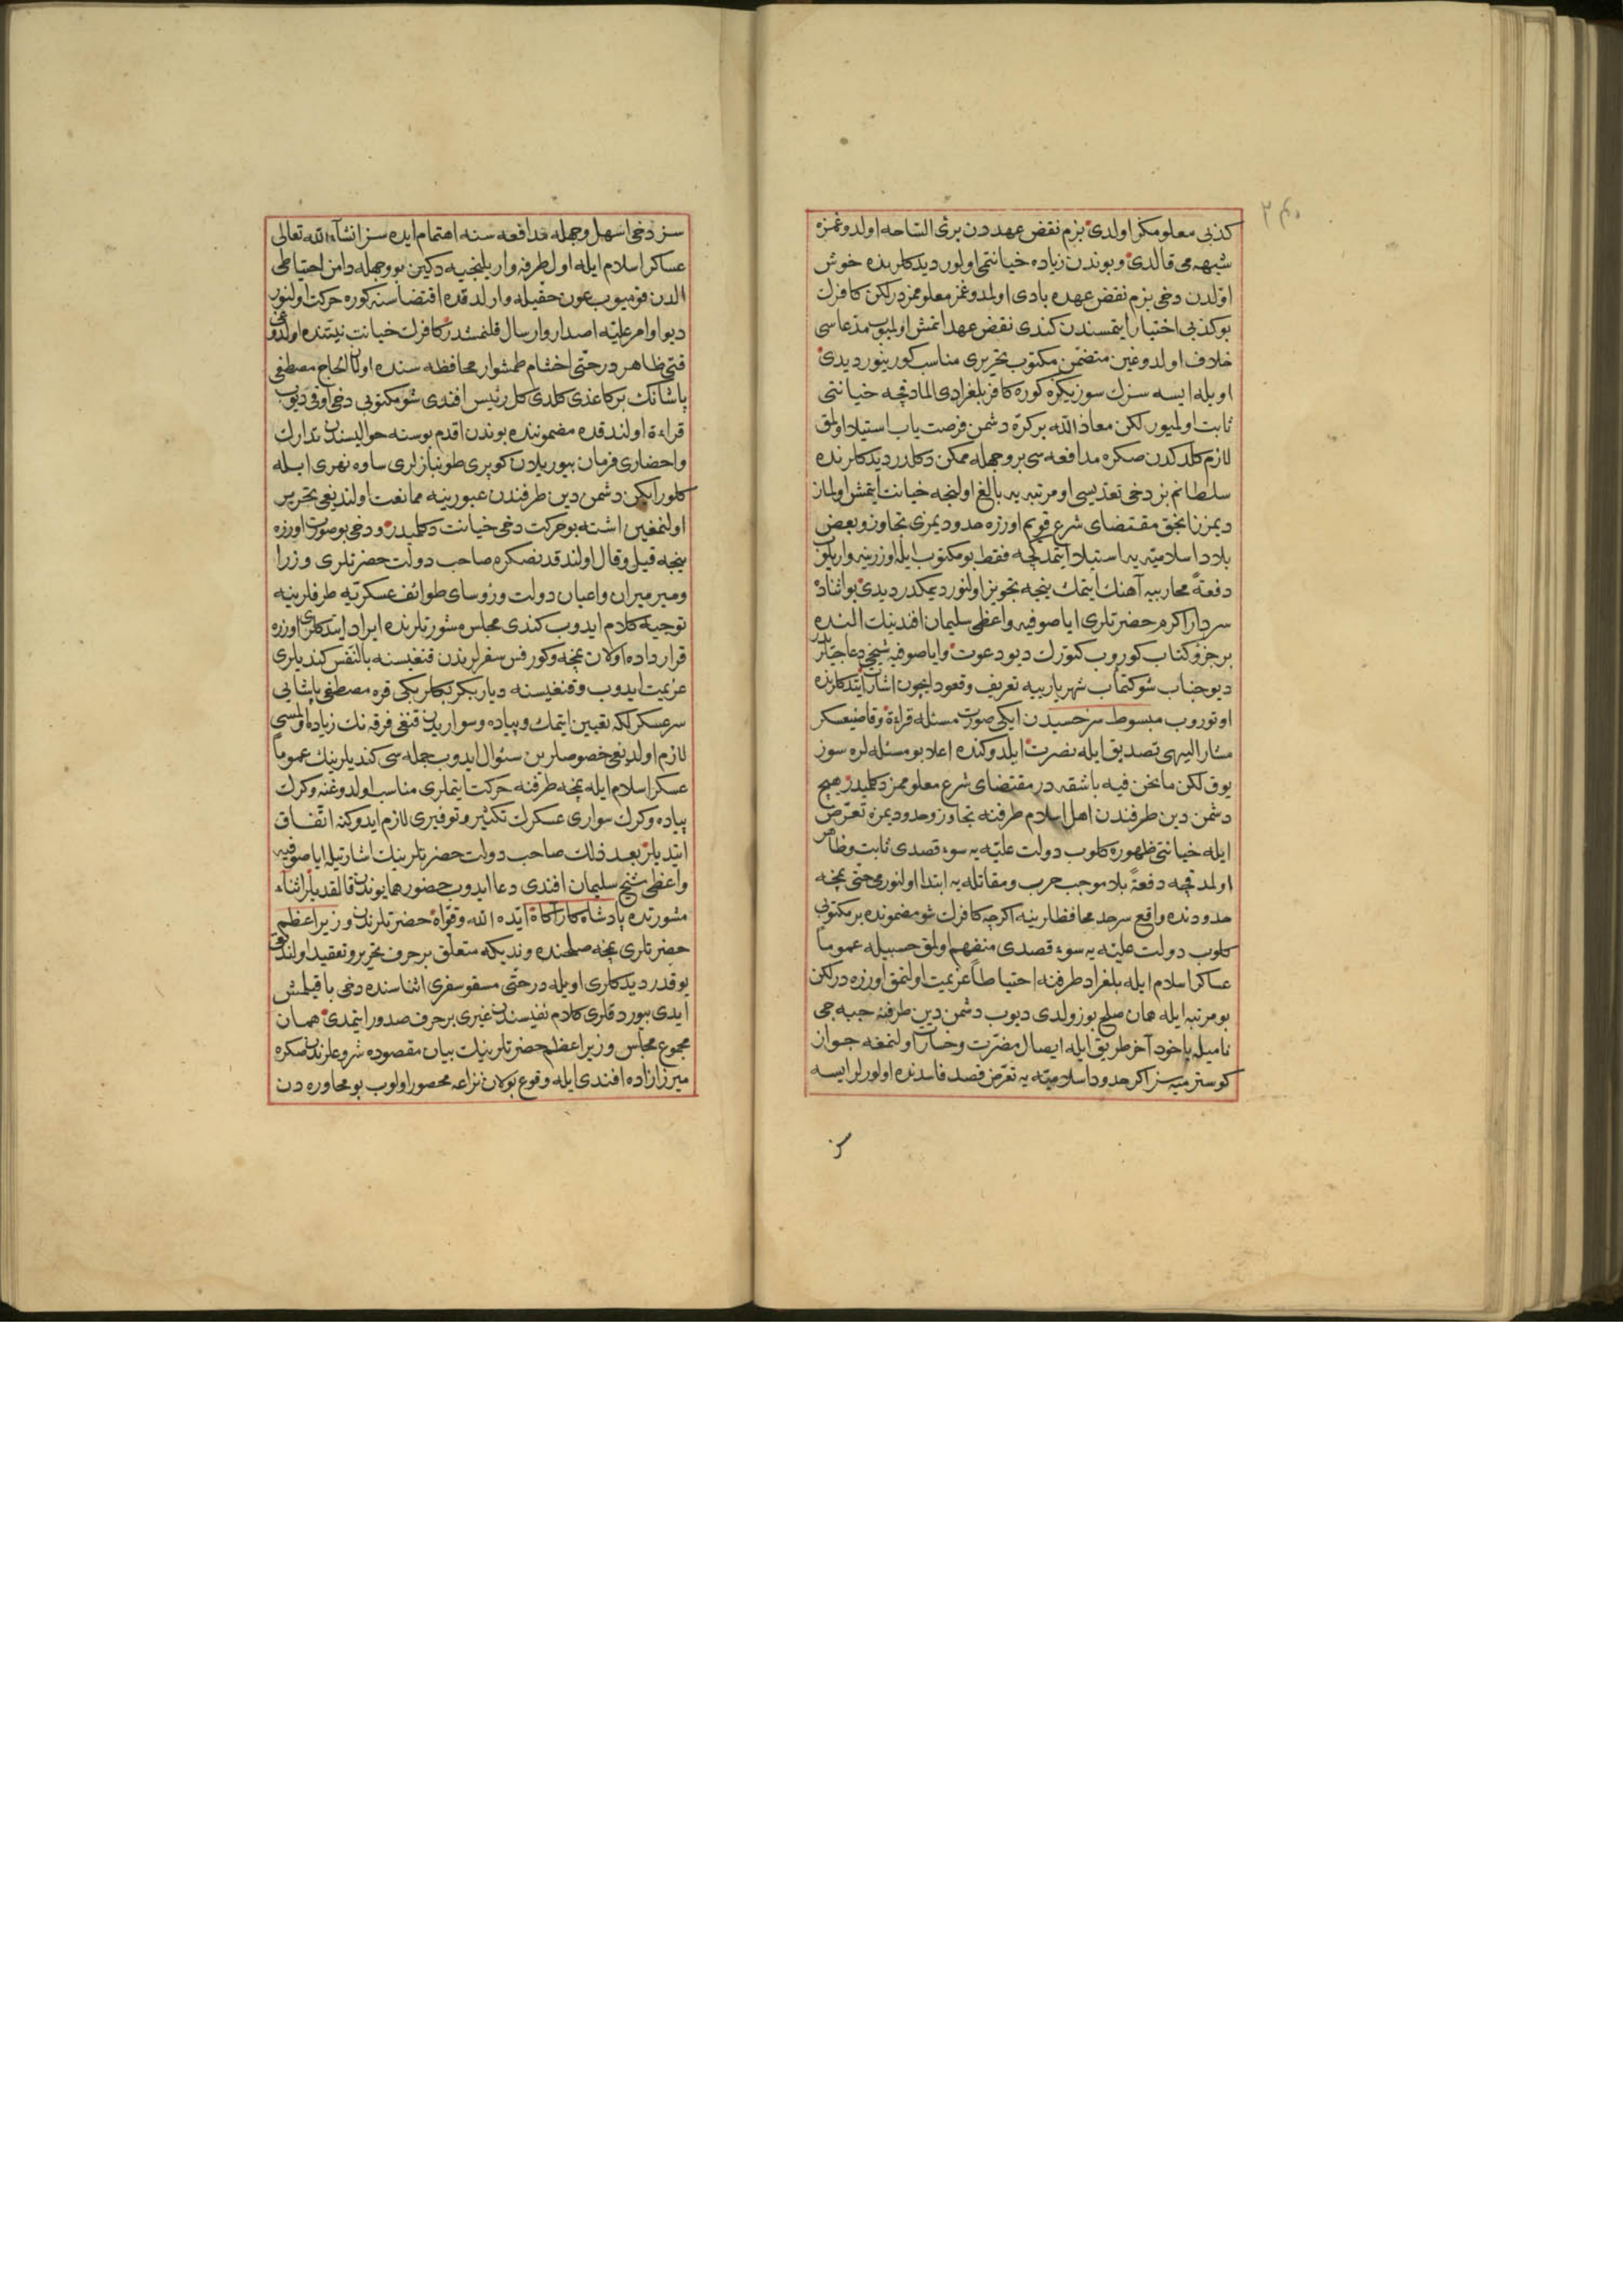 كذبى معلومكز اولدى بزم نقض عهددن برئ الساحه اولدوغمزه
شبهه مى قالدى وبوندن زياده خيانتمى اولور ديدكلرنده خوش
اوّلدن دخى بزم نقض عهده بادى اولمدوغمز معلوممزدر لكن كافرك
بو كذبى اختيار ايتمسندن كندى نقض عهد اتمش اولميوب مدعاسى
خلاف اولدوغين متضمّن مكتوب تحريرى مناسب كورينور ديدى
اويله ايسه سزك سوزيكزه كوره كافر بلغرادى المادقچه خيانتى
ثابت اولميور لكن معاذ الله بر كرّه دشمن فرصت ياب استيلا اولمق
لازم كلدكدن صكره مدافعه سى بر وجهله ممكن دكلدر ديدكلرنده
سلطانم بز دخى تعديسى او مرتبه يه بالغ اولنجه خيانت ايتمش اولماز
ديمزز انجق مقتضاى شرع قويم اوزره حدوديمزى تجاوز وبعض
بلاد اسلاميّه يه استيلا ايتمدكجه فقط بو مكتوب ايله اوزرينه واريلوب
دفعةً محاربيه آهنك ايتمك نيجه تجويز اولنور ديمكدر ديدى بو اثناده
سردار اكرم حضرتلرى اياصوفيه واعظى سليمان افندينك النده
بر جزؤ كتاب كوروب كتورك ديو دعوت واياصوفيه شيخى دعاجيلريدر
ديو جناب شوكتمآب شهرياريه تعريف وقعود ايچون اشارت ايتدكلرنده
اوتوروب مبسوط سرخسيدن ايكى صورت مسئله قراءة وقاضيعسكر
مشار اليهى تصديق ايله نصرت ايلدوكنده اعلا بو مسئله لره سوز
يوق لكن ما نحن فيه باشقه در مقتضاى شرع معلوممز دكلميدر هيچ
دشمن دين طرفندن اهل اسلام طرفنه تجاوز وحدوديمزه تعرّض
ايله خيانتى ظهوره كلوب دولت عليّه يه سوء قصدى ثابت وظاهر
اولمدقچه دفعةً بلا موجب حرب ومقاتله يه ابتدا اولنورمى حتى نمچه
حدودنده واقع سرحد محافظلرينه اكرچه كافرك شو مضمونده بر مكتوبى
كلوب دولت عليّه يه سوء قصدى منفهم اولمق حسبيله عموماً
عساكر اسلام ايله بلغراد طرفنه احتياطاً عزيمت اولنمق اوزره در لكن
بو مرتبه ايله همان صلح بوزولدى ديوب دشمن دين طرفنه جبه جى
ناميله ياخود آخر طريق ايله ايصال مضرّت وخسارت اولنمغه جواز
كوسترميه سز اكر حدود اسلاميّه يه تعرّض قصد فاسدنده اولورلر ايسه
سز
سز دخى اسهل وجهله مدافعه سنه اهتمام ايده سز انشآء الله تعالى
عساكر اسلام ايله اول طرفه واريلنجيه دكين بو وجهله دامن احتياطى
الدن قوميوب عون حقيله وارلدقده اقتضاسنه كوره حركت اولنور
ديو اوامر عليّه اصدار وارسال قلنمشدر كافرك خيانت نيتنده اولدوغى
قتى ظاهردر حتّى اخشام طمشوار محافظه سنده اولان الحاج مصطفى
پاشانك بر كاغذى كلدى كل رئيس افندى شو مكتوبى دخى اوقو ديوب
قراءة اولندقده مضموننده بوندن اقدم بوسنه حواليسندن تدارك
واحضارى فرمان بيوريلان كوپرى طونبازلرى ساوه نهرى ايله
كلورايكن دشمن دين طرفندن عبورينه ممانعت اولنديغى تحرير
اولنمغين اشته بو حركت دخى خيانت دكلميدر ودخى بو صورت اوزره
نيجه قيل وقال اولندقدنصكره صاحب دولت حضرتلرى وزرا
وميرميران واعيان دولت ورؤساى طوائف عسكريّه طرفلرينه
توجيه كلام ايدوب كندى مجلس مشورتلرنده ايراد ايتدكلرى اوزره
قرارداده اولان نمچه وكورفس سفرلريندن قنغيسنه بالنفس كنديلرى
عزيمت ايدوب وقنغيسنه دياربكر بكلربكى قره مصطفى پاشايى
سرعسكرلكه تعيين ايتمك وپياده وسواريدن قنغى فرقه نك زياده اولمسى
لازم اولديغى خصوصلرين سئوال ايدوب جمله سى كنديلرينك عموماً
عسكر اسلام ايله نمچه طرفنه حركت ايتملرى مناسب اولدوغنه وكرك
پياده وكرك سوارى عسكرك تكثير وتوفيرى لازم ايدوكنه اتّفاق
ايتديلر بعد ذلك صاحب دولت حضرتلرينك اشارتيله اياصوفيه
واعظى شيخ سليمان افندى دعا ايدوب حضور همايوندن قالقديلر اثناء
مشورتده پادشاه كارآكاه ايّده الله وقوّاه حضرتلرندن وزير اعظم
حضرتلرى نمچه صلحنده ونديكه متعلّق بر حرف تحرير وتعقيد اولندوقى
يوقدر ديدكلرى اويله در حتّى مسقو سفرى اثناسنده دخى باقيلمش
ايدى بيوردقلرى كلام نفيسندن غيرى بر حرف صدور ايتمدى همان
مجموع مجلس وزير اعظم حضرتلرينك بيان مقصوده شروعلرندن صكره
ميرزازاده افندى ايله وقوع بولان نزاعه محصور اولوب بو محاوره دن